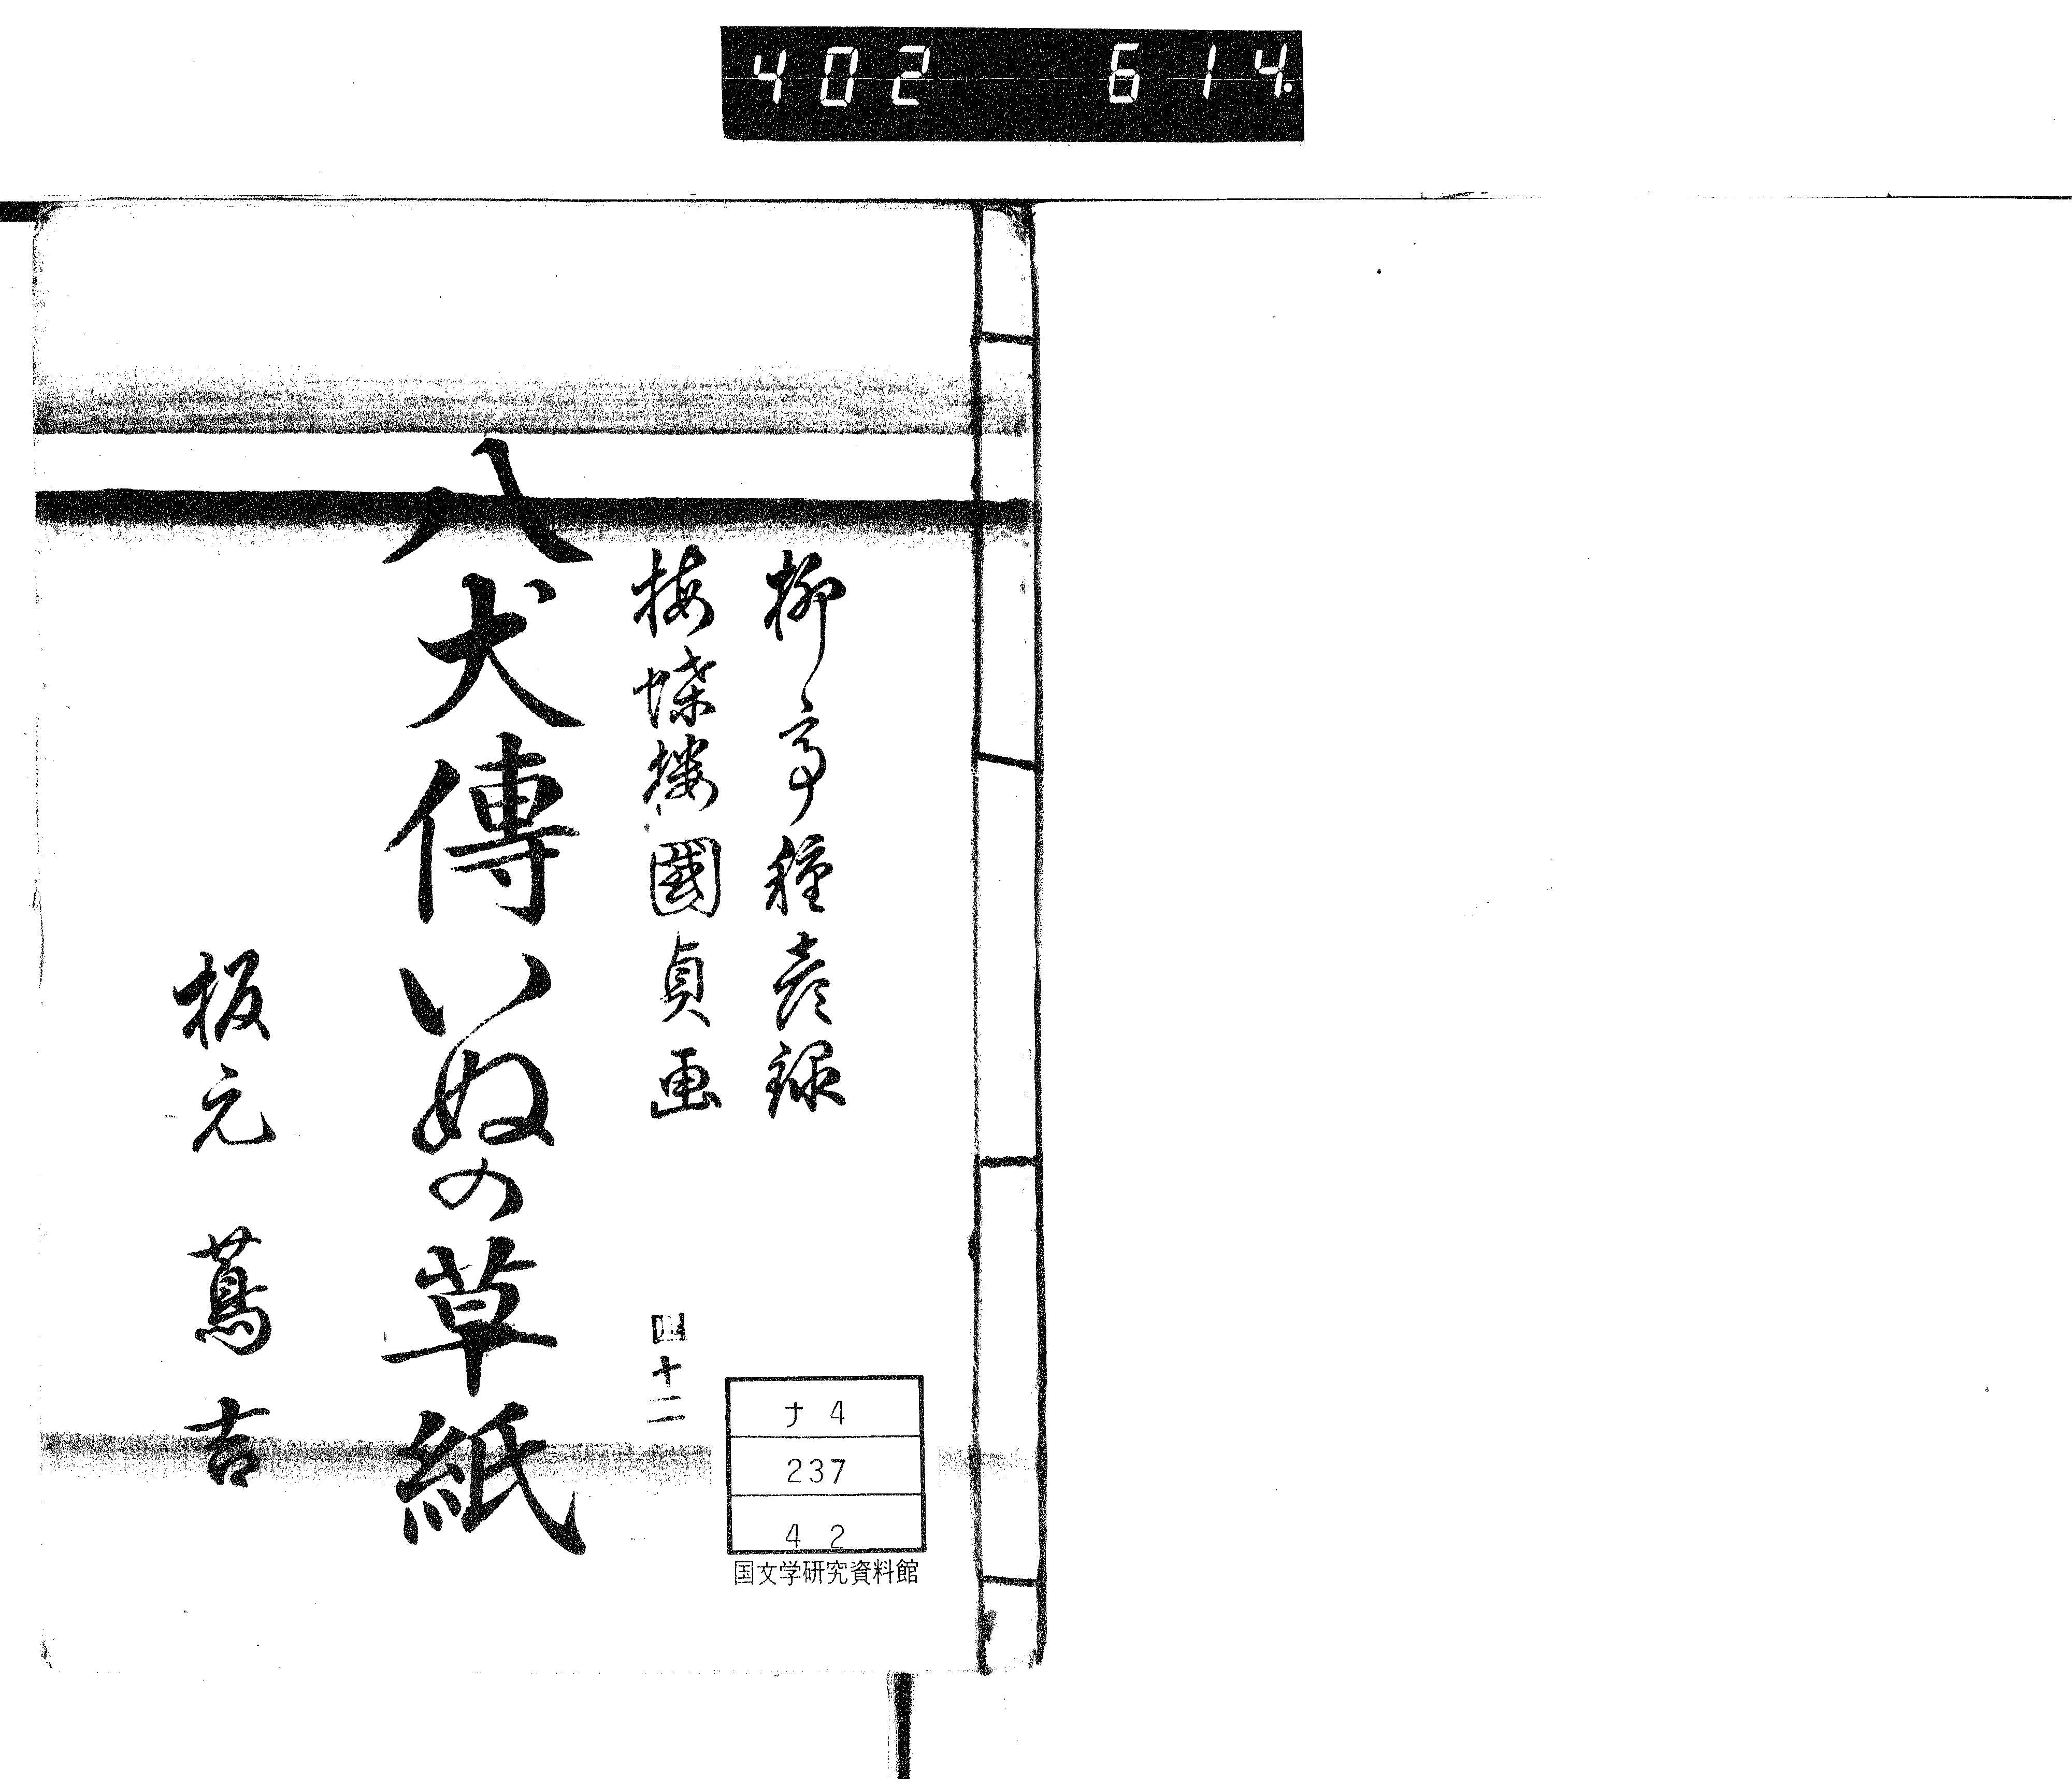 402 614.
柳亭種彦録
梅蝶楼國貞画
四十二
八犬傳いぬの草紙
板元 蔦吉
ナ4
237
42
国文学研究資料館